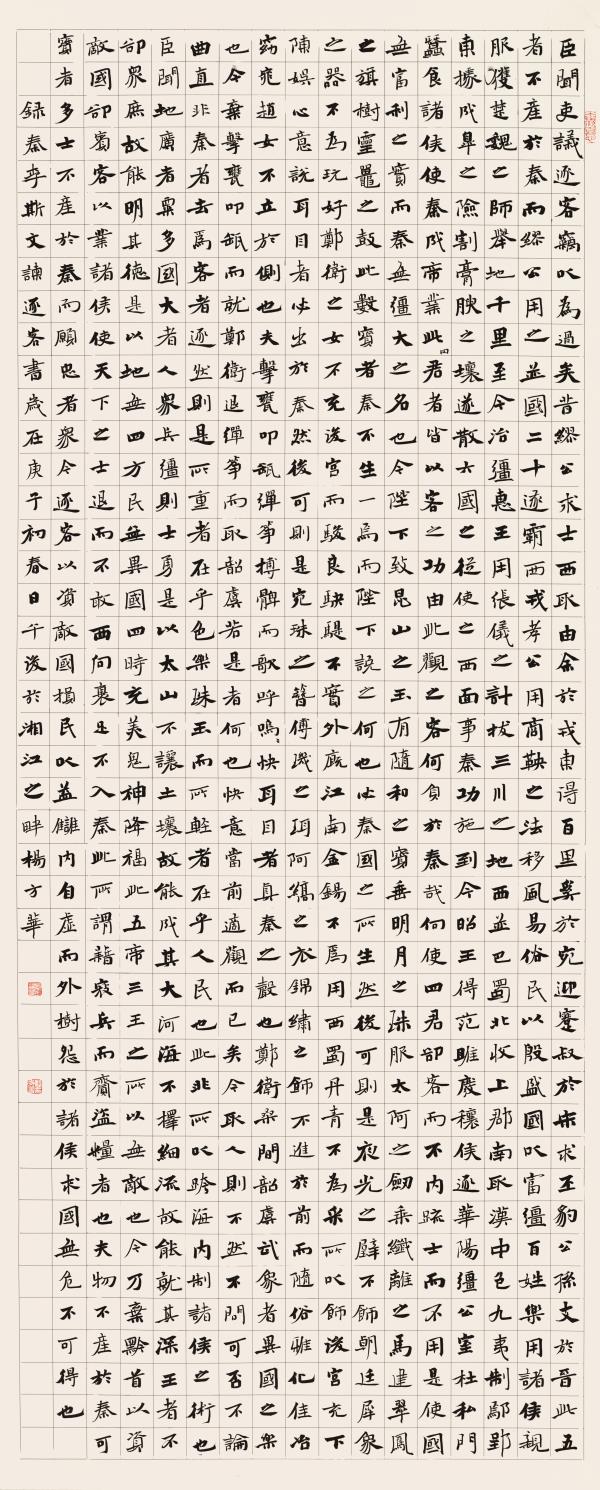 臣聞吏議逐客竊以為過矣昔繆公求士西取由余於戎東得百里奚於宛迎蹇叔於宋求丕豹公孫支於晉此五
者不產於秦而繆公用之並國二十遂霸西戎孝公用商鞅之法移風易俗民以殷盛國以富彊百姓樂用諸侯親
服獲楚魏之師舉地千里至今治彊惠王用張儀之計拔三川之地西並巴蜀北收上郡南取漢中包九夷制鄢郢
東據成皋之險割膏腴之壤遂散六國之從使之西面事秦功施到今昭王得范雎廢穰侯逐華陽彊公室杜私門
蠶食諸侯使秦成帝業此四君者皆以客之功由此觀之客何負於秦哉向使四君卻客而不內疏士而不用是使國
無富利之實而秦無彊大之名也今陛下致昆山之玉有隨和之寶垂明月之珠服太阿之劍乘纖離之馬建翠鳳
之旗樹靈鼉之鼓此數寶者秦不生一焉而陛下說之何也必秦國之所生然後可則是夜光之璧不飾朝廷犀象
之器不為玩好鄭衛之女不充後宮而駿良駃騠不實外廄江南金錫不為用西蜀丹青不為采所以飾後宮充下
陳娛心意說耳目者必出於秦然後可則是宛珠之簪傅璣之珥阿縞之衣錦繡之飾不進於前而隨俗雅化佳冶
窈窕趙女不立於側也夫擊甕叩缻彈箏搏髀而歌呼嗚嗚快耳目者真秦之聲也鄭衛桑間韶虞武象者異國之樂
也今棄擊甕叩缻而就鄭衛退彈箏而取韶虞若是者何也快意當前適觀而已矣今取人則不然不問可否不論
曲直非秦者去為客者逐然則是所重者在乎色樂珠玉而所輕者在乎人民也此非所以跨海內制諸侯之術也
臣聞地廣者粟多國大者人眾兵彊則士勇是以太山不讓土壤故能成其大河海不擇細流故能就其深王者不
卻眾庶故能明其德是以地無四方民無異國四時充美鬼神降福此五帝三王之所以無敵也今乃棄黔首以資
敵國卻賓客以業諸侯使天下之士退而不敢西向裹足不入秦此所謂藉寇兵而齎盜糧者也夫物不產於秦可
寶者多士不產於秦而願忠者眾今逐客以資敵國損民以益讎內自虛而外樹怨於諸侯求國無危不可得也
錄秦李斯文諫逐客書歲在庚子初春日午後於湘江之畔楊方華